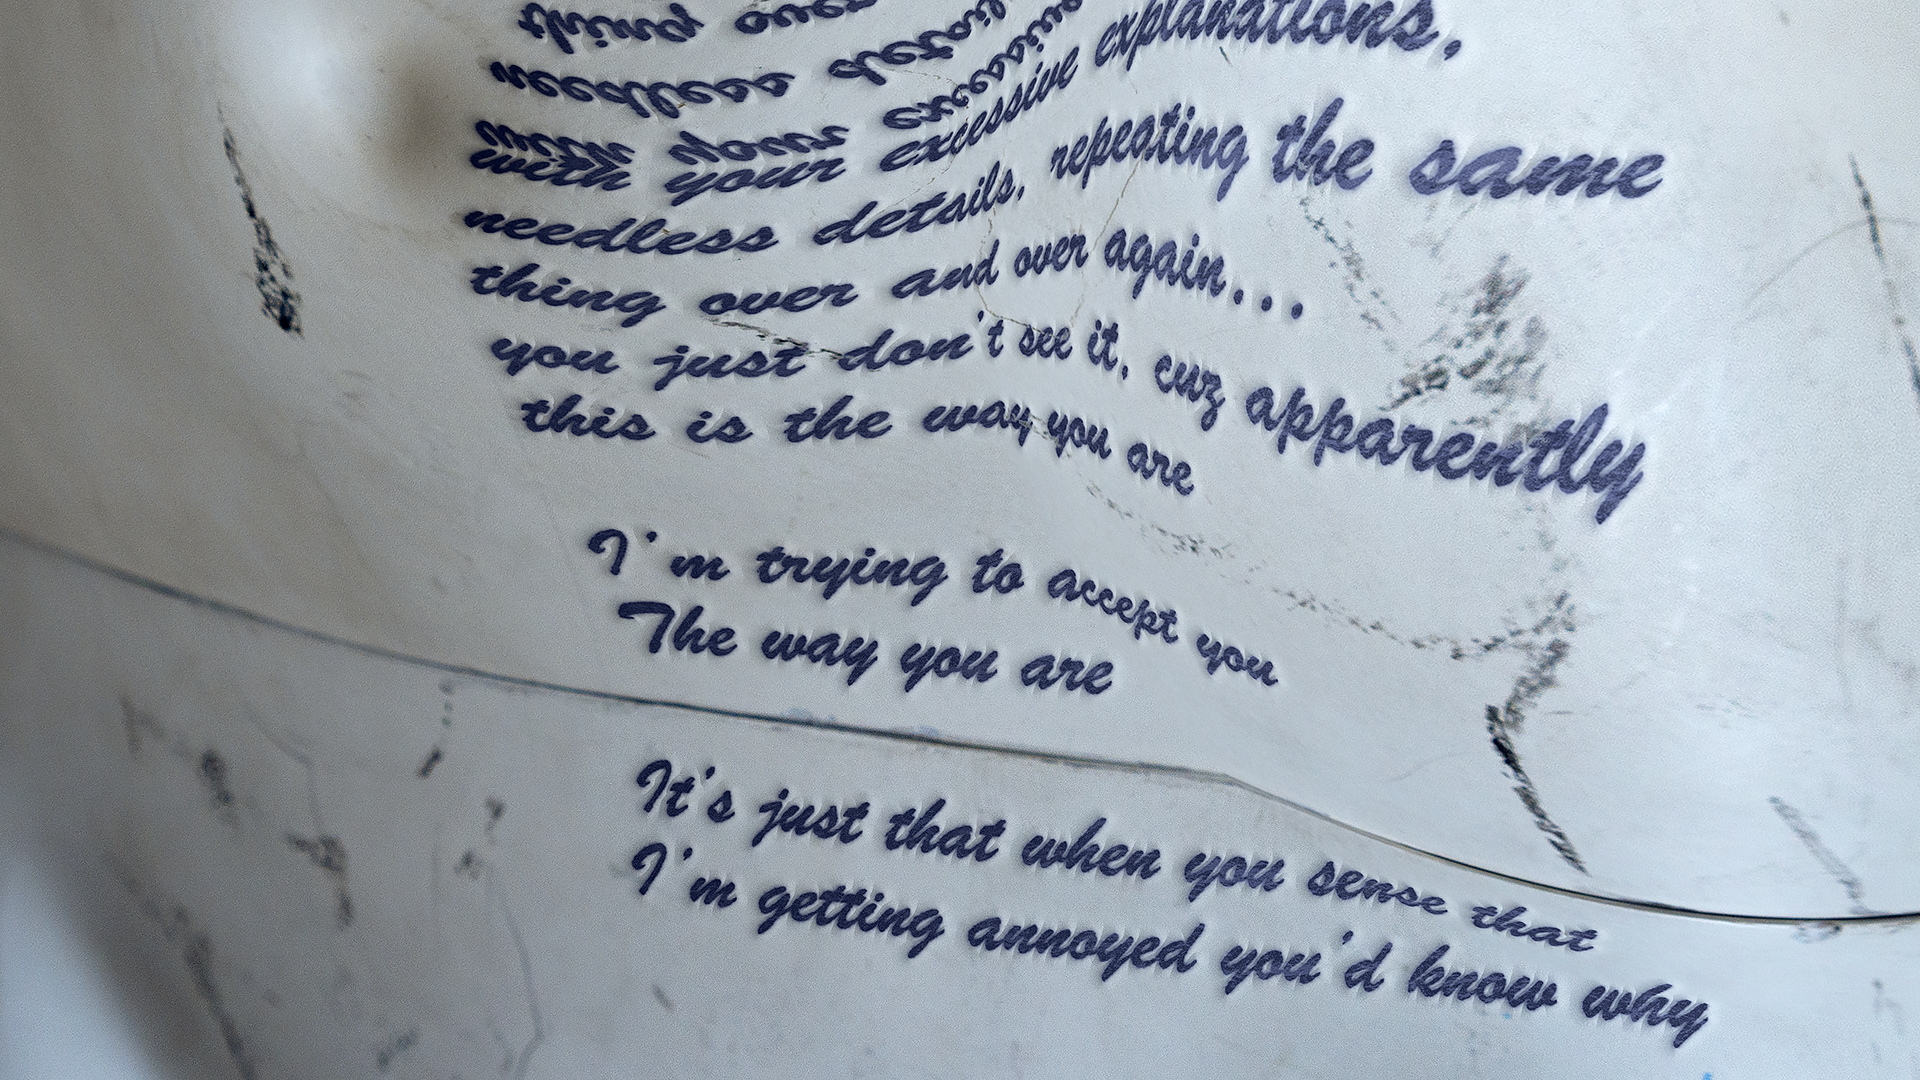 thing over
needless details
with your excessive
with your excessive explanations,
needless details, repeating the same
thing over and over again...
you just don't see it, cuz apparently
this is the way you are
I'm trying to accept you
The way you are
It's just that when you sense that
I'm getting annoyed you'd know why